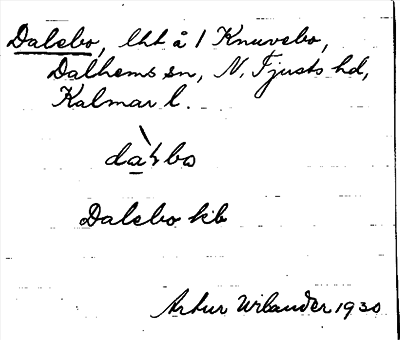 Dalsbo, lht å 1 Knuvebo,
Dalhems sn, N. Tjusts hd,
Kalmar l.
Dalsbo kb
Artur Wilander 1930